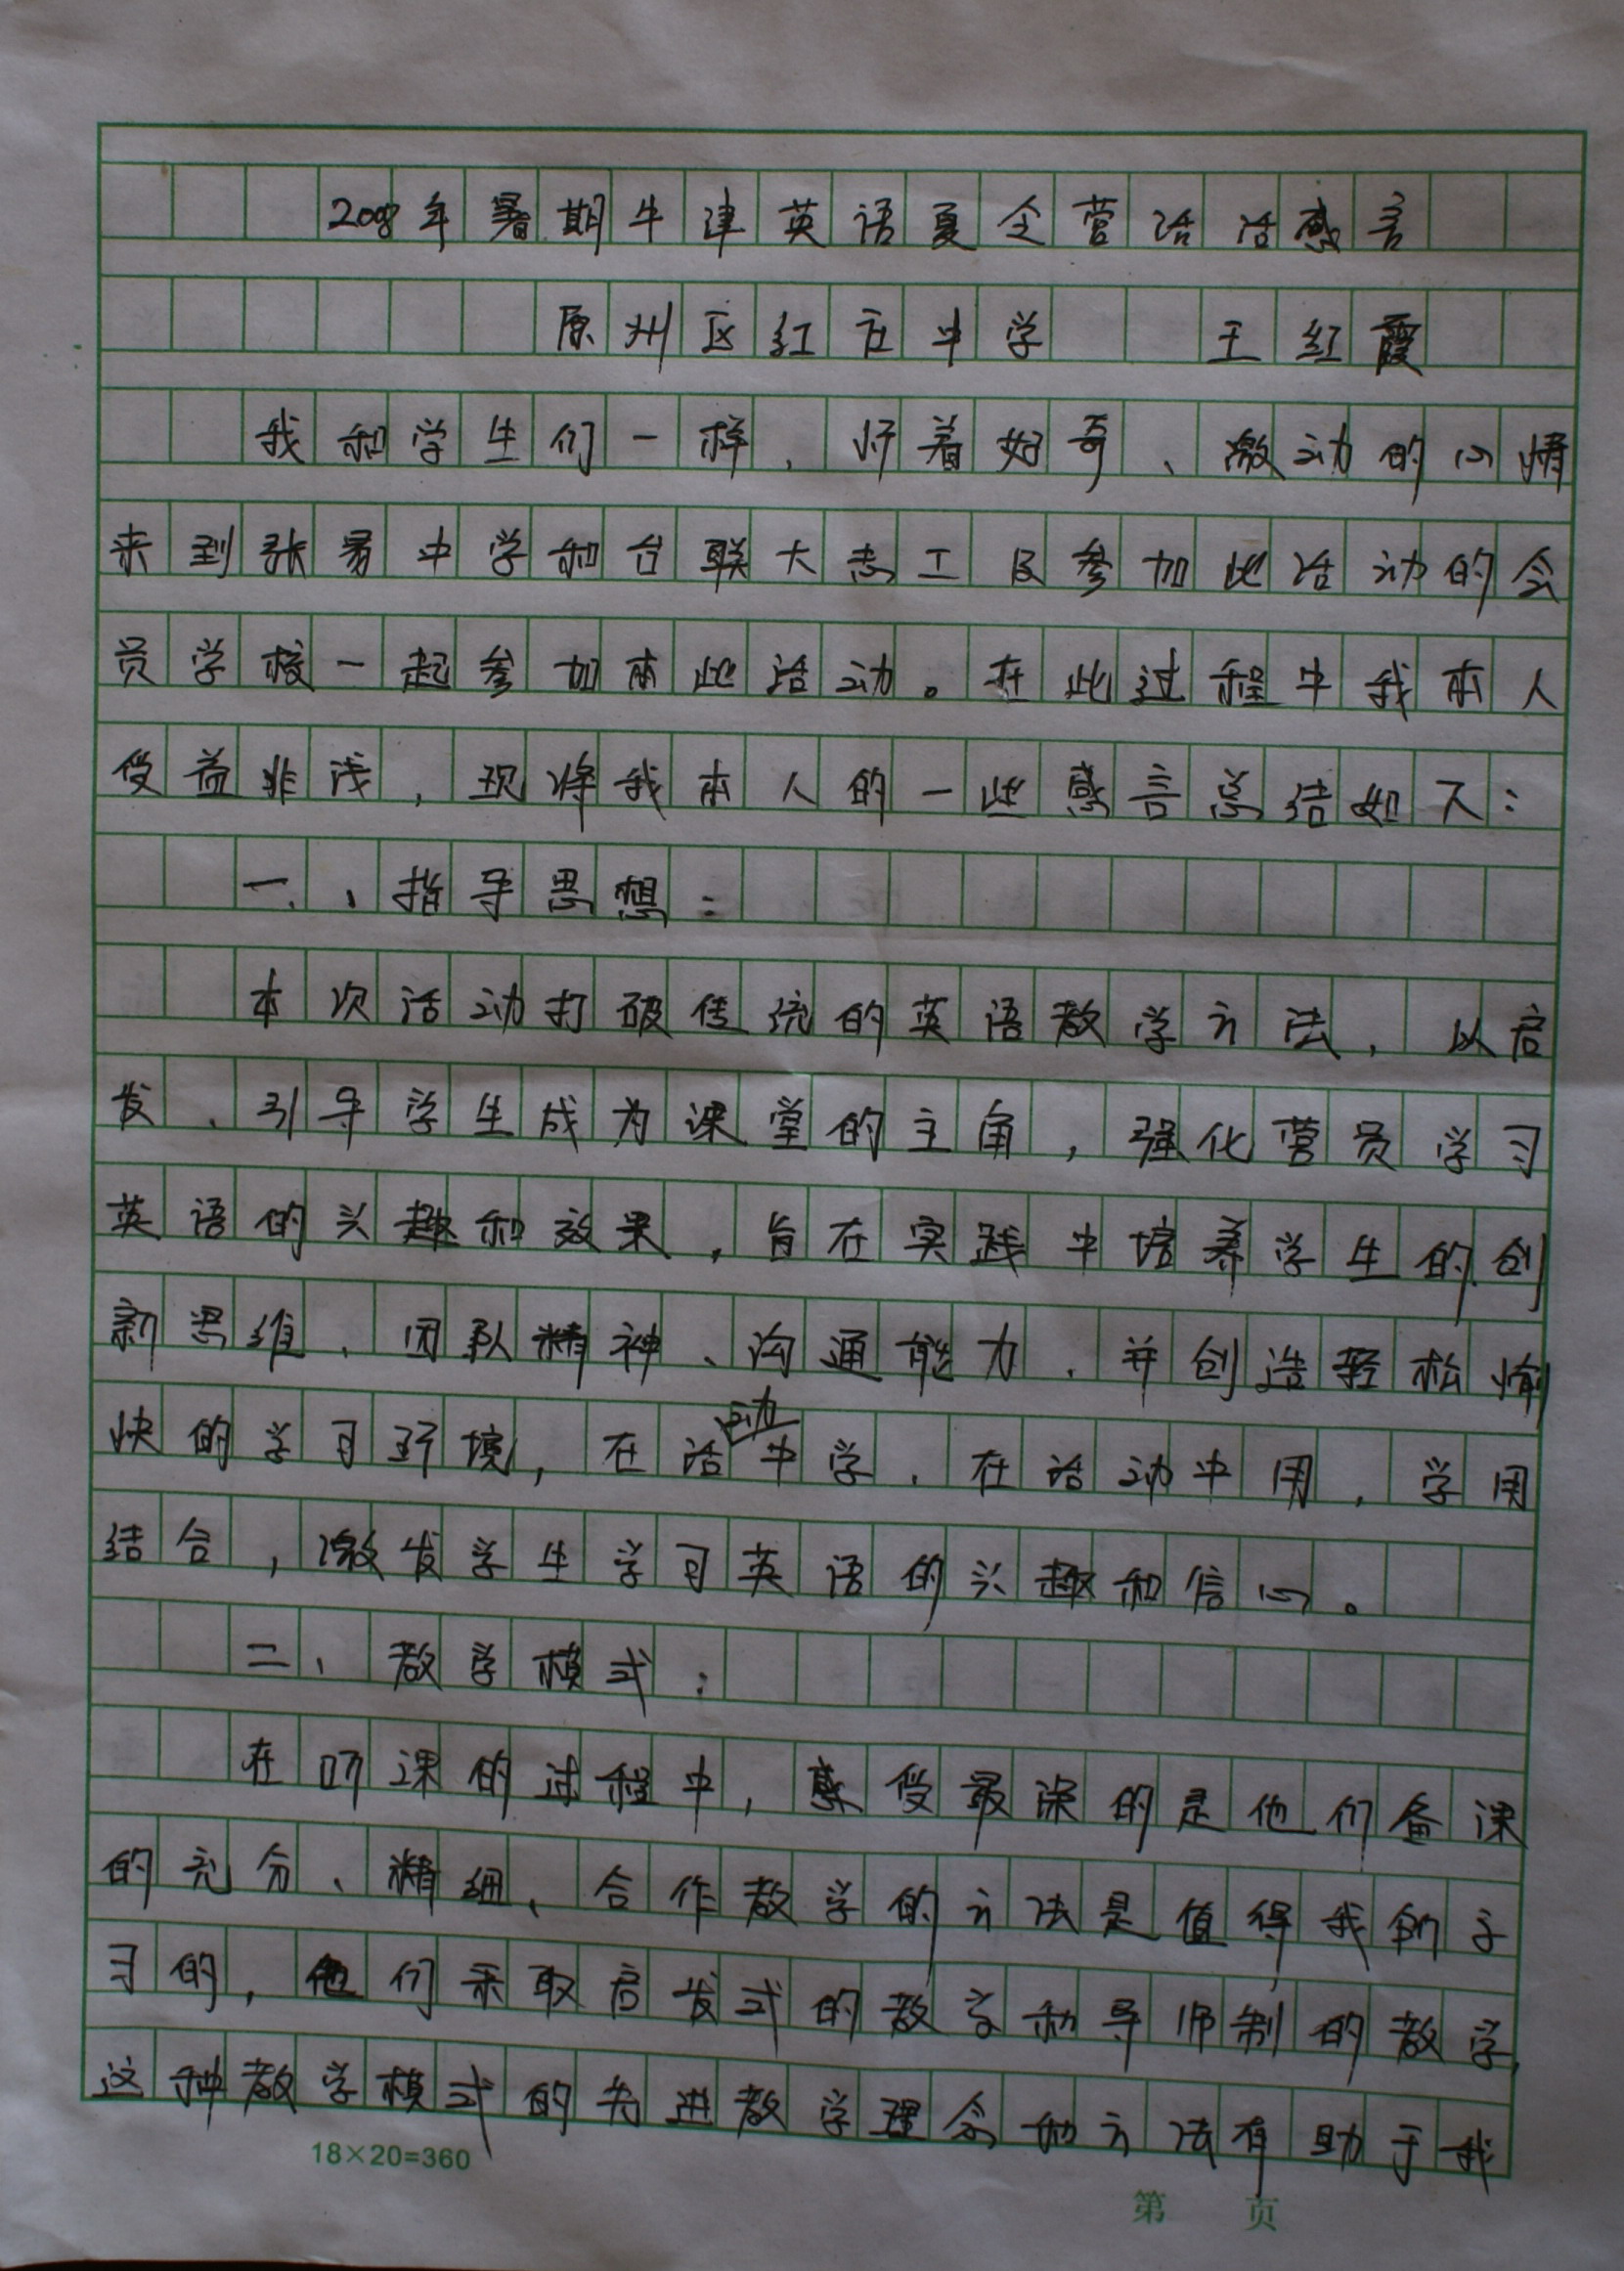 2008年暑期牛津英语夏令营活活感言
原州区红庄中学 王红霞
我和学生们一样,怀着好奇、激动的心情
来到张易中学和台联大志工及参加此活动的会
员学校一起参加本此活动。在此过程中我本人
受益非浅,现将我本人的一些感言总结如下:
一、指导思想:
本次活动打破传统的英语教学方法,以启
发、引导学生成为课堂的主角,强化营员学习
英语的兴趣和效果,旨在实践中培养学生的创
新思维、团队精神、沟通能力,并创造轻松愉
快的学习环境,在活动中学,在活动中用,学用
结合,激发学生学习英语的兴趣和信心。
二、教学模式:
在听课的过程中,感受最深的是他们备课
的充分、精细、合作教学的方法是值得我们学
习的,他们采取启发式的教学和导师制的教学,
这种教学模式的先进教学理念和方法有助于我
18×20=360
第 页